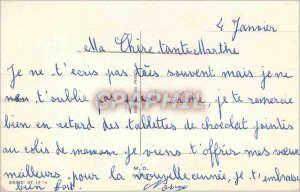 4 Janvier
Ma Chère tante Marthe
Je ne t'écris pas très souvent mais je ne
t'oublie pas je te remercie
bien en retard des tablettes de chocolat jointes
au colis de maman je viens t'offrir mes vœux
meilleurs pour la nouvelle année, je t'embrasse
bien fort.